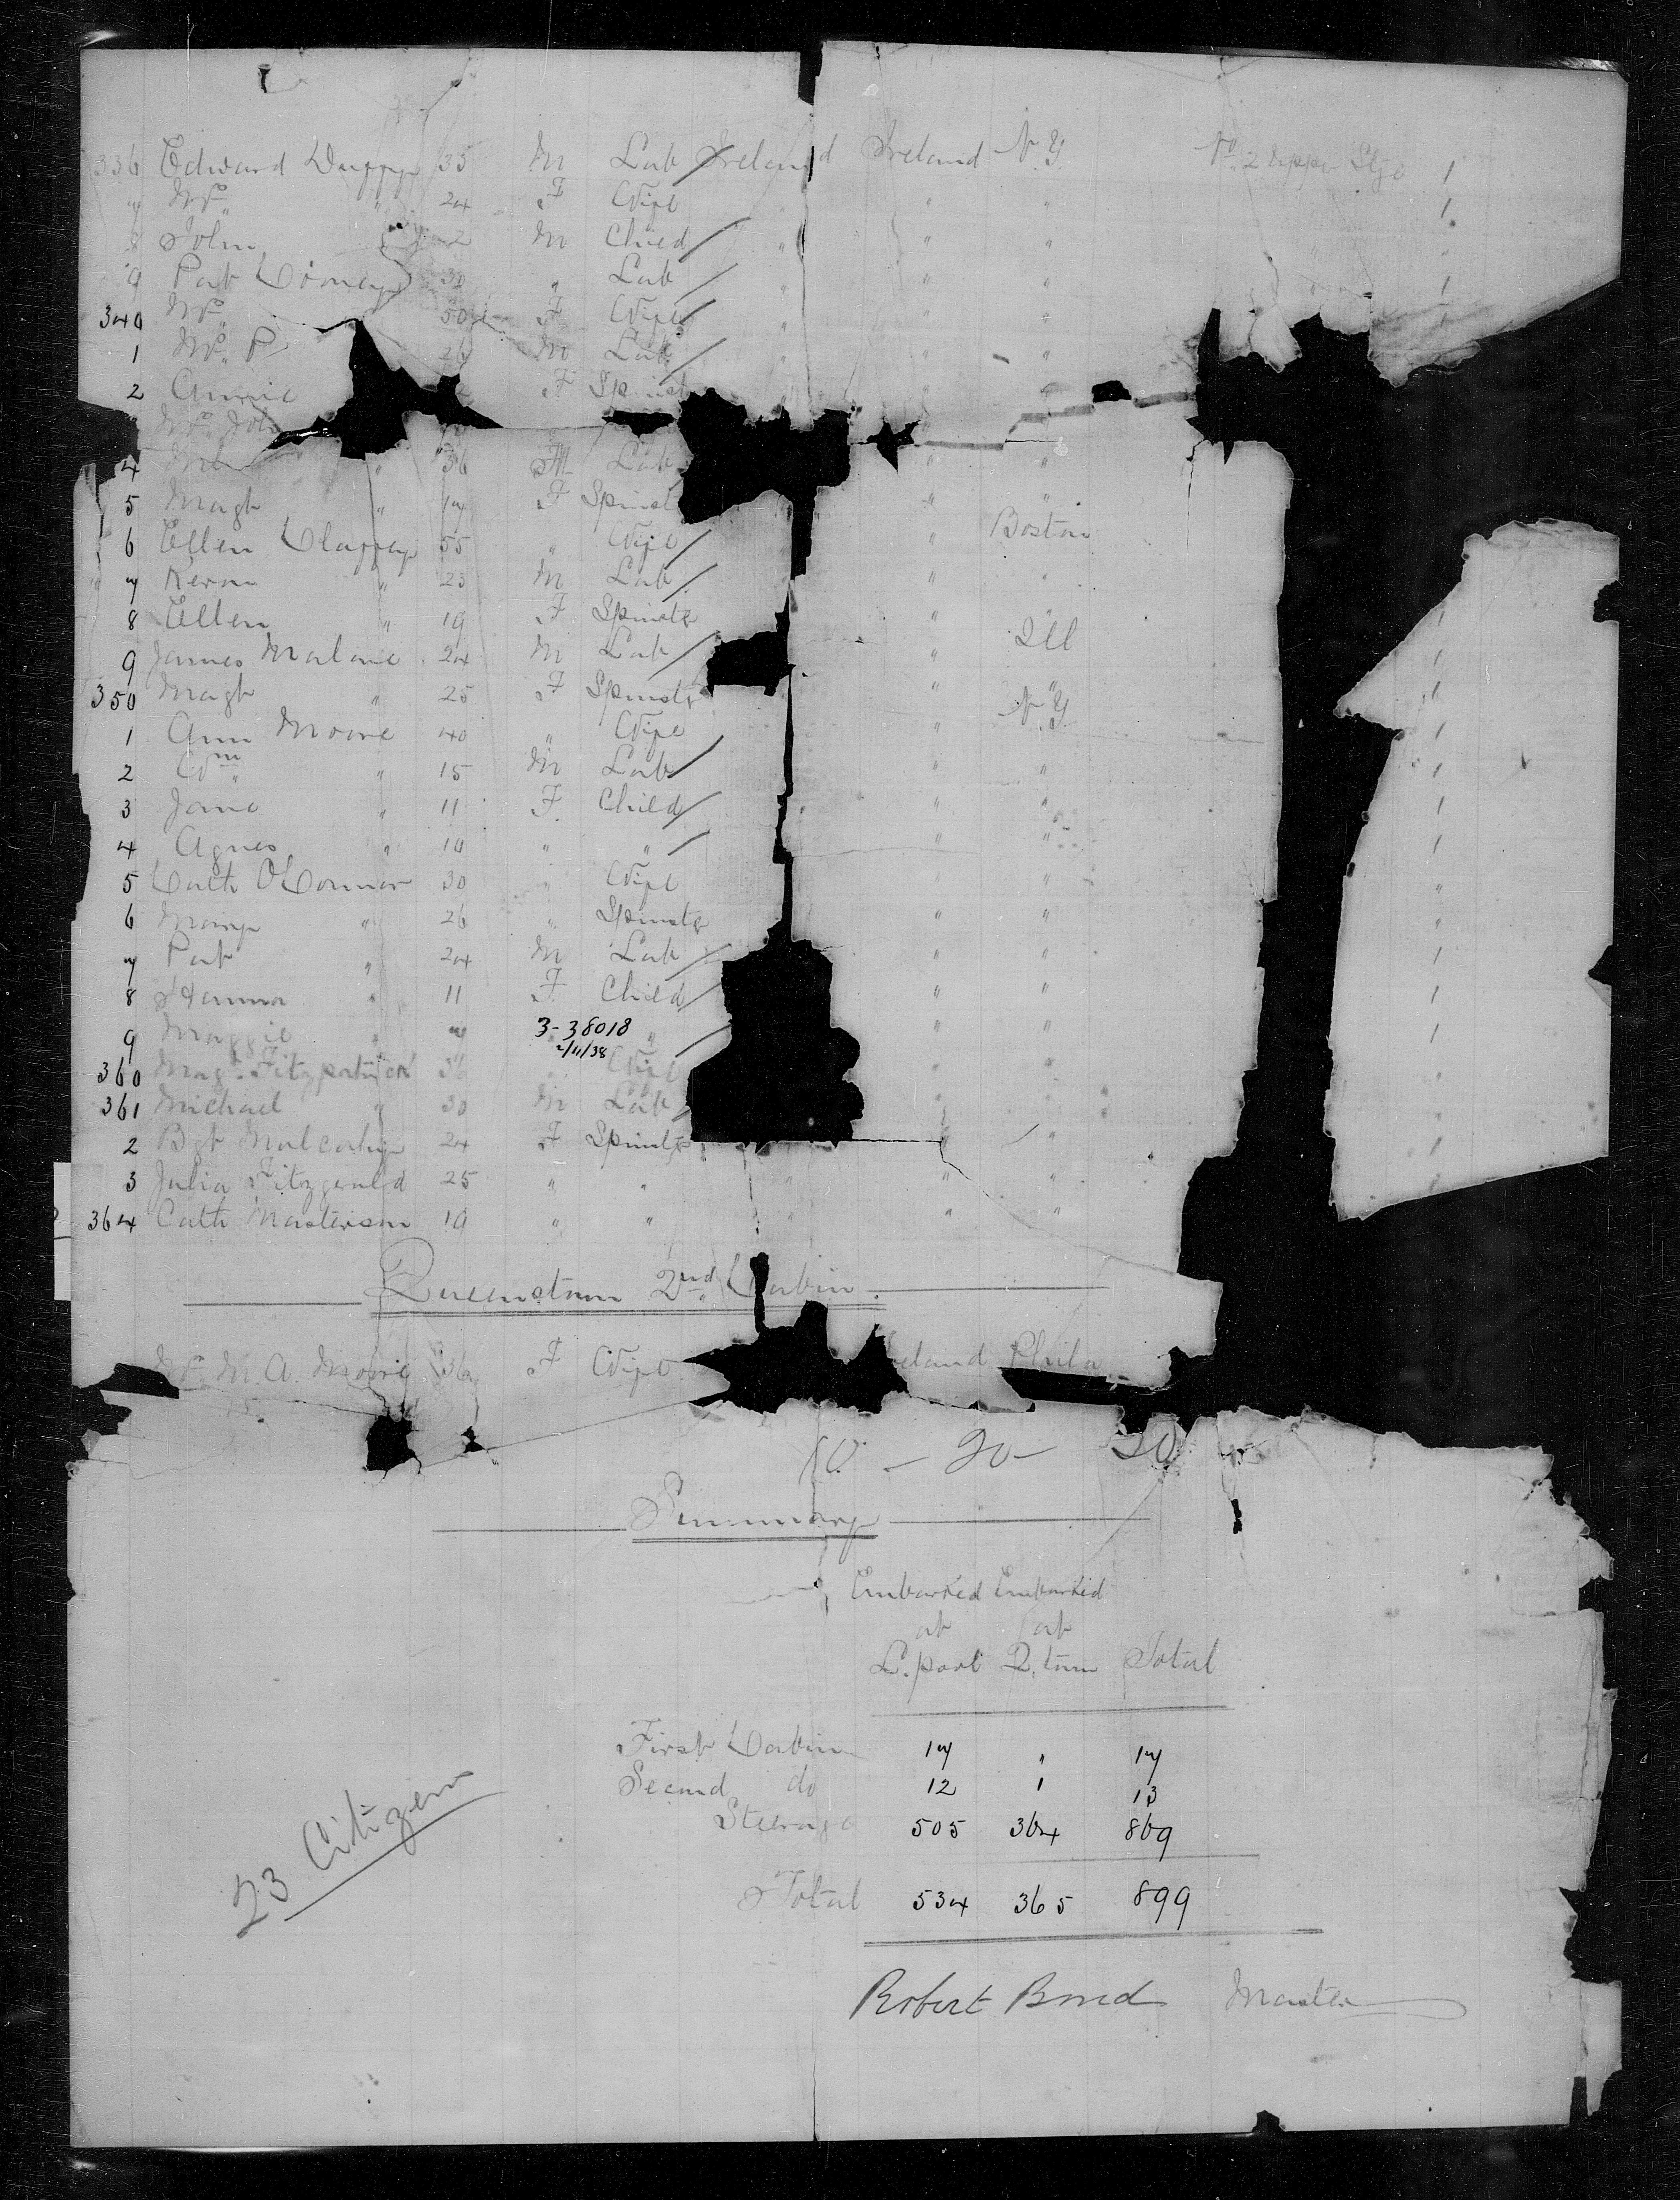 336 Edward Duffy 35 M Lab Ireland Ireland N.Y. No. 2 upper Stge 1
7 Mrs " 24 F Wife " " " 1
8 John " 2 M Child " " "
9 Pat 30 " Lab " " " 1
340 Mrs " 50 F Wife " " "
1 Mr P 26 M Lab " " "
2 Annie F Spinst " "
Mrs John
4 " 36 M Lab " "
5 Magt " 17 F Spinst " "
6 Ellen Claffey 55 " Wife " Boston
7 Keran " 23 M Lab " "
8 Ellen " 19 F Spinstr " " 1
9 James Malone 24 M Lab " Ill 1
350 Magt " 25 F Spinstr " " 1
1 Ann Moore 40 " Wife " N.Y. 1
2 Wm " 15 M Lab " " 1
3 Jane " 11 F Child " " 1
4 Agnes " 10 " " " " 1
5 Cath O'Connor 30 " Wife " " "
6 Mary " 26 " Spinstr " " "
7 Pat " 24 M Lab " " 1
8 Hanna " 11 F Child " " 1
9 Maggie " 7 3-38018 " " " 1
2/11/38
360 Magt Fitzpatrick 36 " Wife " "
361 Michael " 30 M Lab " " 1
2 Bgt Mulcahy 24 F Spinstr " " 1
3 Julia Fitzgerald 25 " " " " " 1
364 Cath Masterson 19 " " " " "
Queenstown 2nd Cabin
Mrs M. A. Moore 36 F Wife eland Phila
10 - 20 - 20
Summary
Embarked Embarked
at at
L.pool Q.town Total
First Cabin 17 " 17
Second do 12 1 13
Steerage 505 364 869
Total 534 365 899
23 Citizens
Robert Bond Master